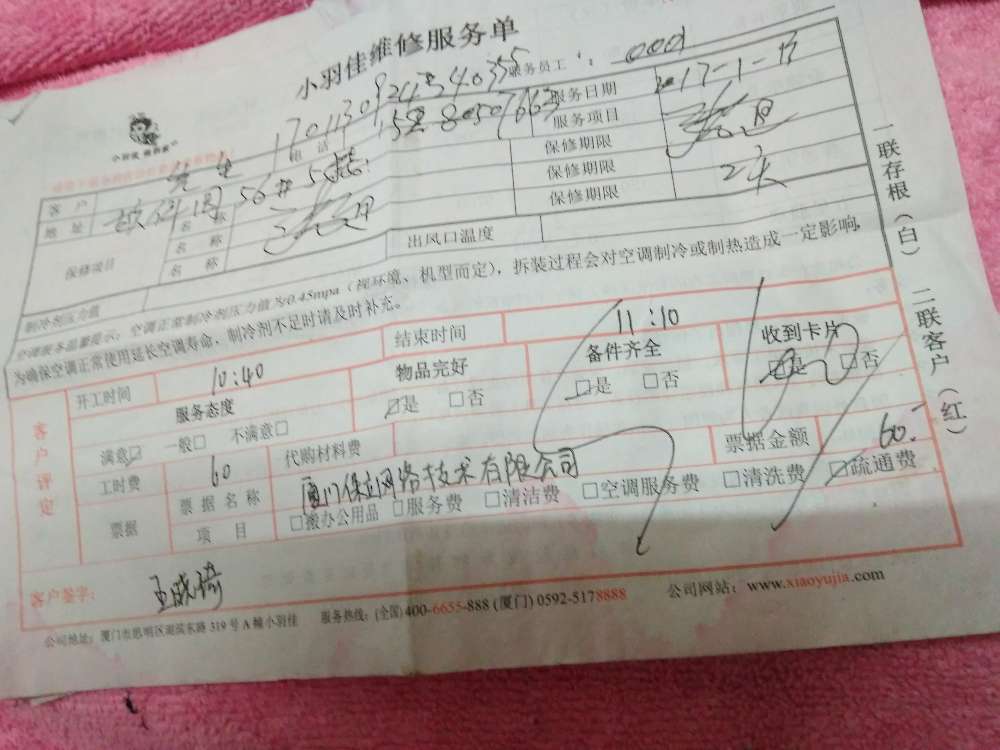 小羽佳维修服务单
服务员工: 0001
17011309242540355 服务日期 2017-1-13
电话 服务项目 疏通
客户 先生 保修期限
地址 56# 保修期限 2天
保修项目 名称 疏通 保修期限
名称
名称
制冷剂压力值 出风口温度
空调服务温馨提示:空调正常制冷剂压力值为0.45mpa(视环境、机型而定),拆装过程会对空调制冷或制热造成一定影响,
为确保空调正常使用延长空调寿命,制冷剂不足时请及时补充。
客户评定
开工时间 10:40 结束时间 11:10
服务态度 物品完好 备件齐全 收到卡片
满意☑ 一般□ 不满意□ ☑是 □否 ☑是 □否 ☑是 □否
工时费 60 代购材料费 票据金额 60.-
票据 票据名称 厦门保立网络技术有限公司
项目 □搬办公用品 □服务费 □清洁费 □空调服务费 □清洗费 ☑疏通费
客户签字:
公司地址:厦门市思明区湖滨东路319号A幢小羽佳 服务热线:(全国)400-6655-888 (厦门) 0592-5178888 公司网站:www.xiaoyujia.com
一联存根(白) 二联客户(红)